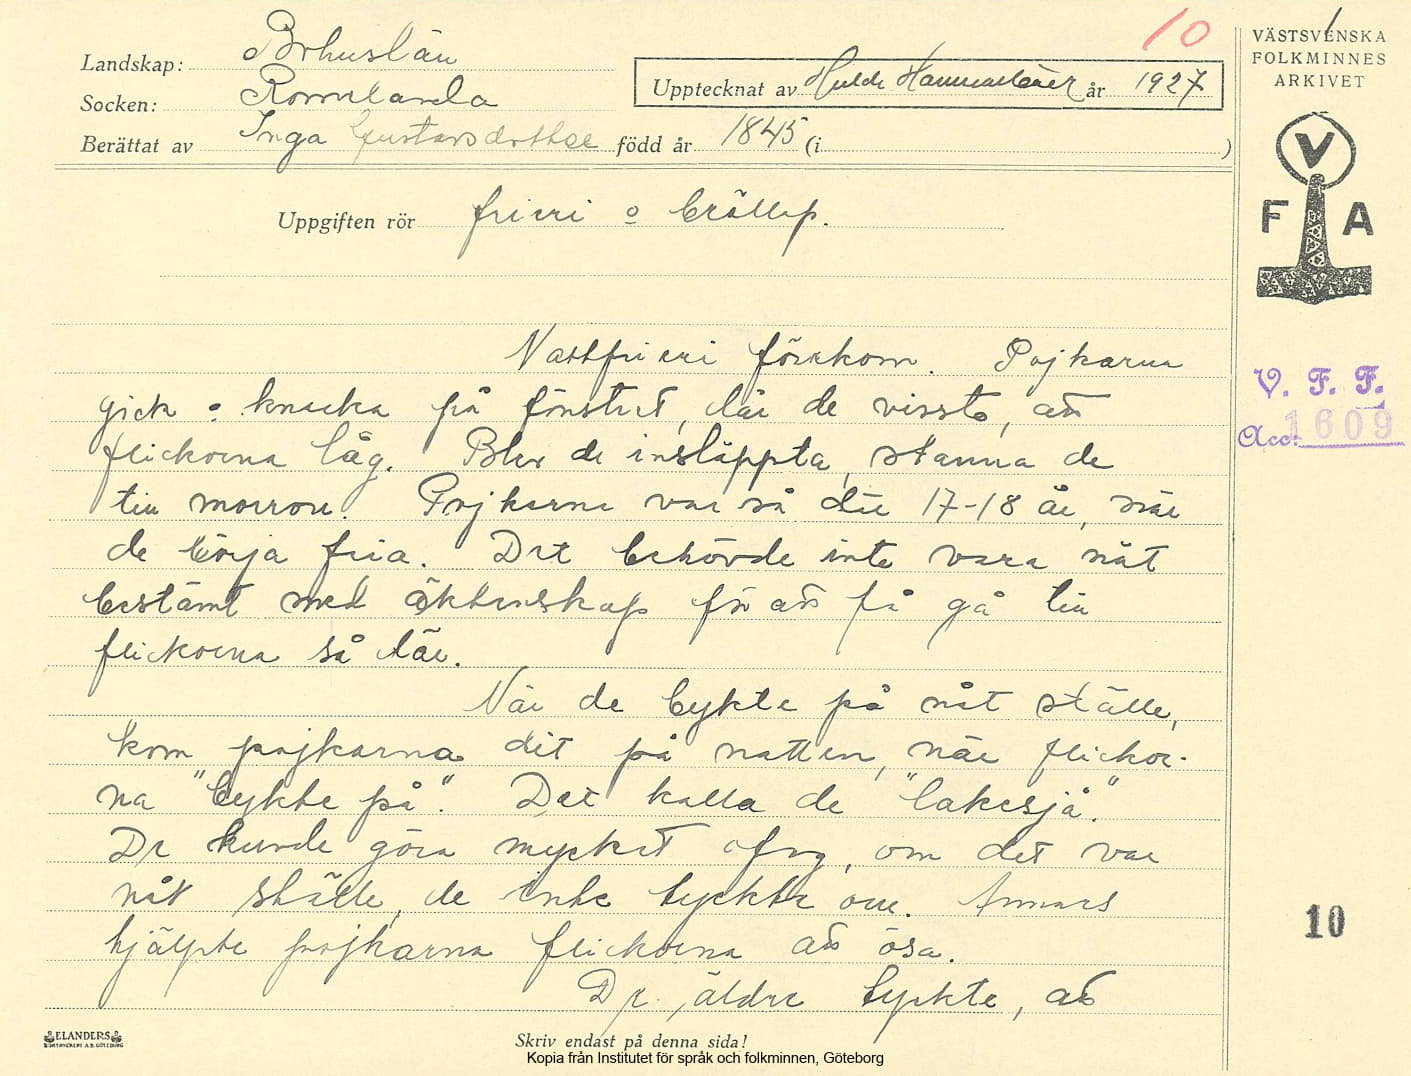 10
1
Landskap: Bohuslän
Socken: Romelanda
Berättat av Inga Gustavsdotter född år 1845 (i )
Upptecknat av Hulda Hammarbäck år 1927
VÄSTSVENSKA
FOLKMINNES
ARKIVET
V
F A
Uppgiften rör frieri o bröllop.
V. F. F.
Acc: 1609
Nattfrieri förekom. Pojkarna
gick o knacka på fönstret, där de visste, att
flickorna låg. Blev de insläppta, stanna de
till morron. Pojkarna var så där 17-18 år, när
de börja fria. Det behövde inte vara nåt
bestämt med äktenskap för att få gå till
flickorna så där.
När de bykte på nåt ställe,
kom pojkarna dit på natten, när flickor-
na "bykte på". Det kalla de "lakesjå".
De kunde göra mycket ofog, om det var
nåt ställe, de inte tyckte om. Annars
hjälpte pojkarna flickorna att ösa.
De äldre tyckte, att
10
ELANDERS
Skriv endast på denna sida!
Kopia från Institutet för språk och folkminnen, Göteborg